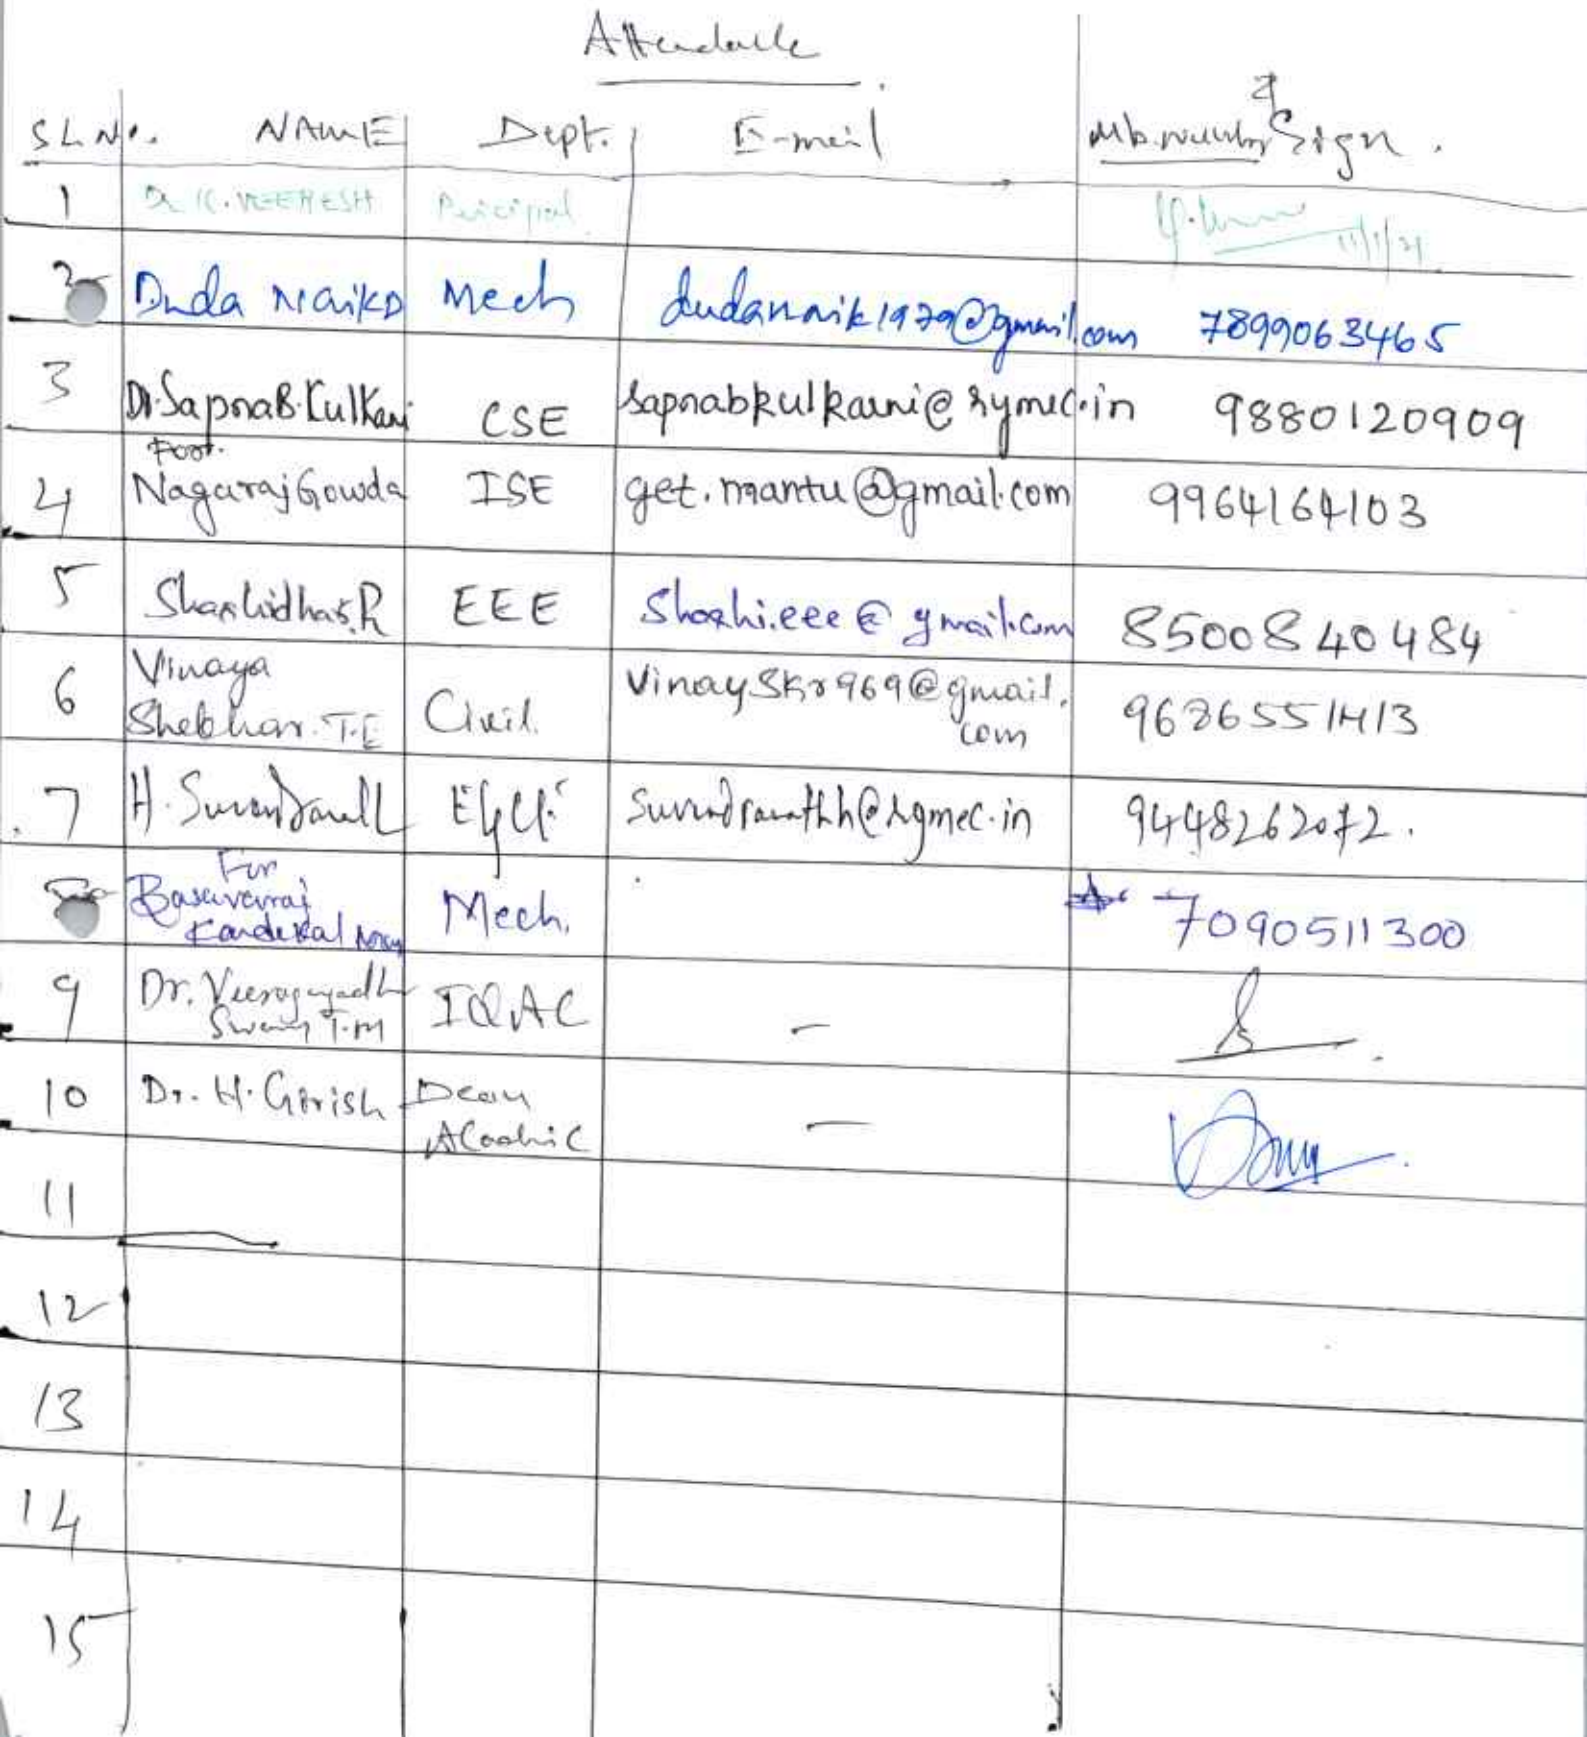 Attendance
SL No. NAME Dept. E-mail Mb. number & Sign.
1 Dr K. VEERESH Principal 11/1/21
2 Duda Naik D Mech dudanaik1979@gmail.com 7899063465
3 Dr. Sapna B. Kulkarni CSE sapnabkulkarni@rymec.in 9880120909
4 Prof. Nagaraj Gowda ISE get.mantu@gmail.com 9964164103
5 Shashidhar. R EEE Shashi.eee@gmail.com 8500840484
6 Vinaya Civil. vinayskr969@gmail. 9686551413
Shekhar. T.E com
7 H. E&CE suvendranathh@rymec.in 9448262072.
8 For Mech. 7090511300
Basavaraj
9 Dr. IQAC –
Swamy T.M
10 Dr. H. Girish Dean –
11
12
13
14
15